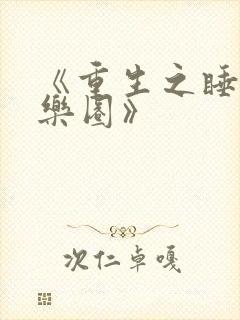 《重生之睡
樂園》
次仁卓嘎